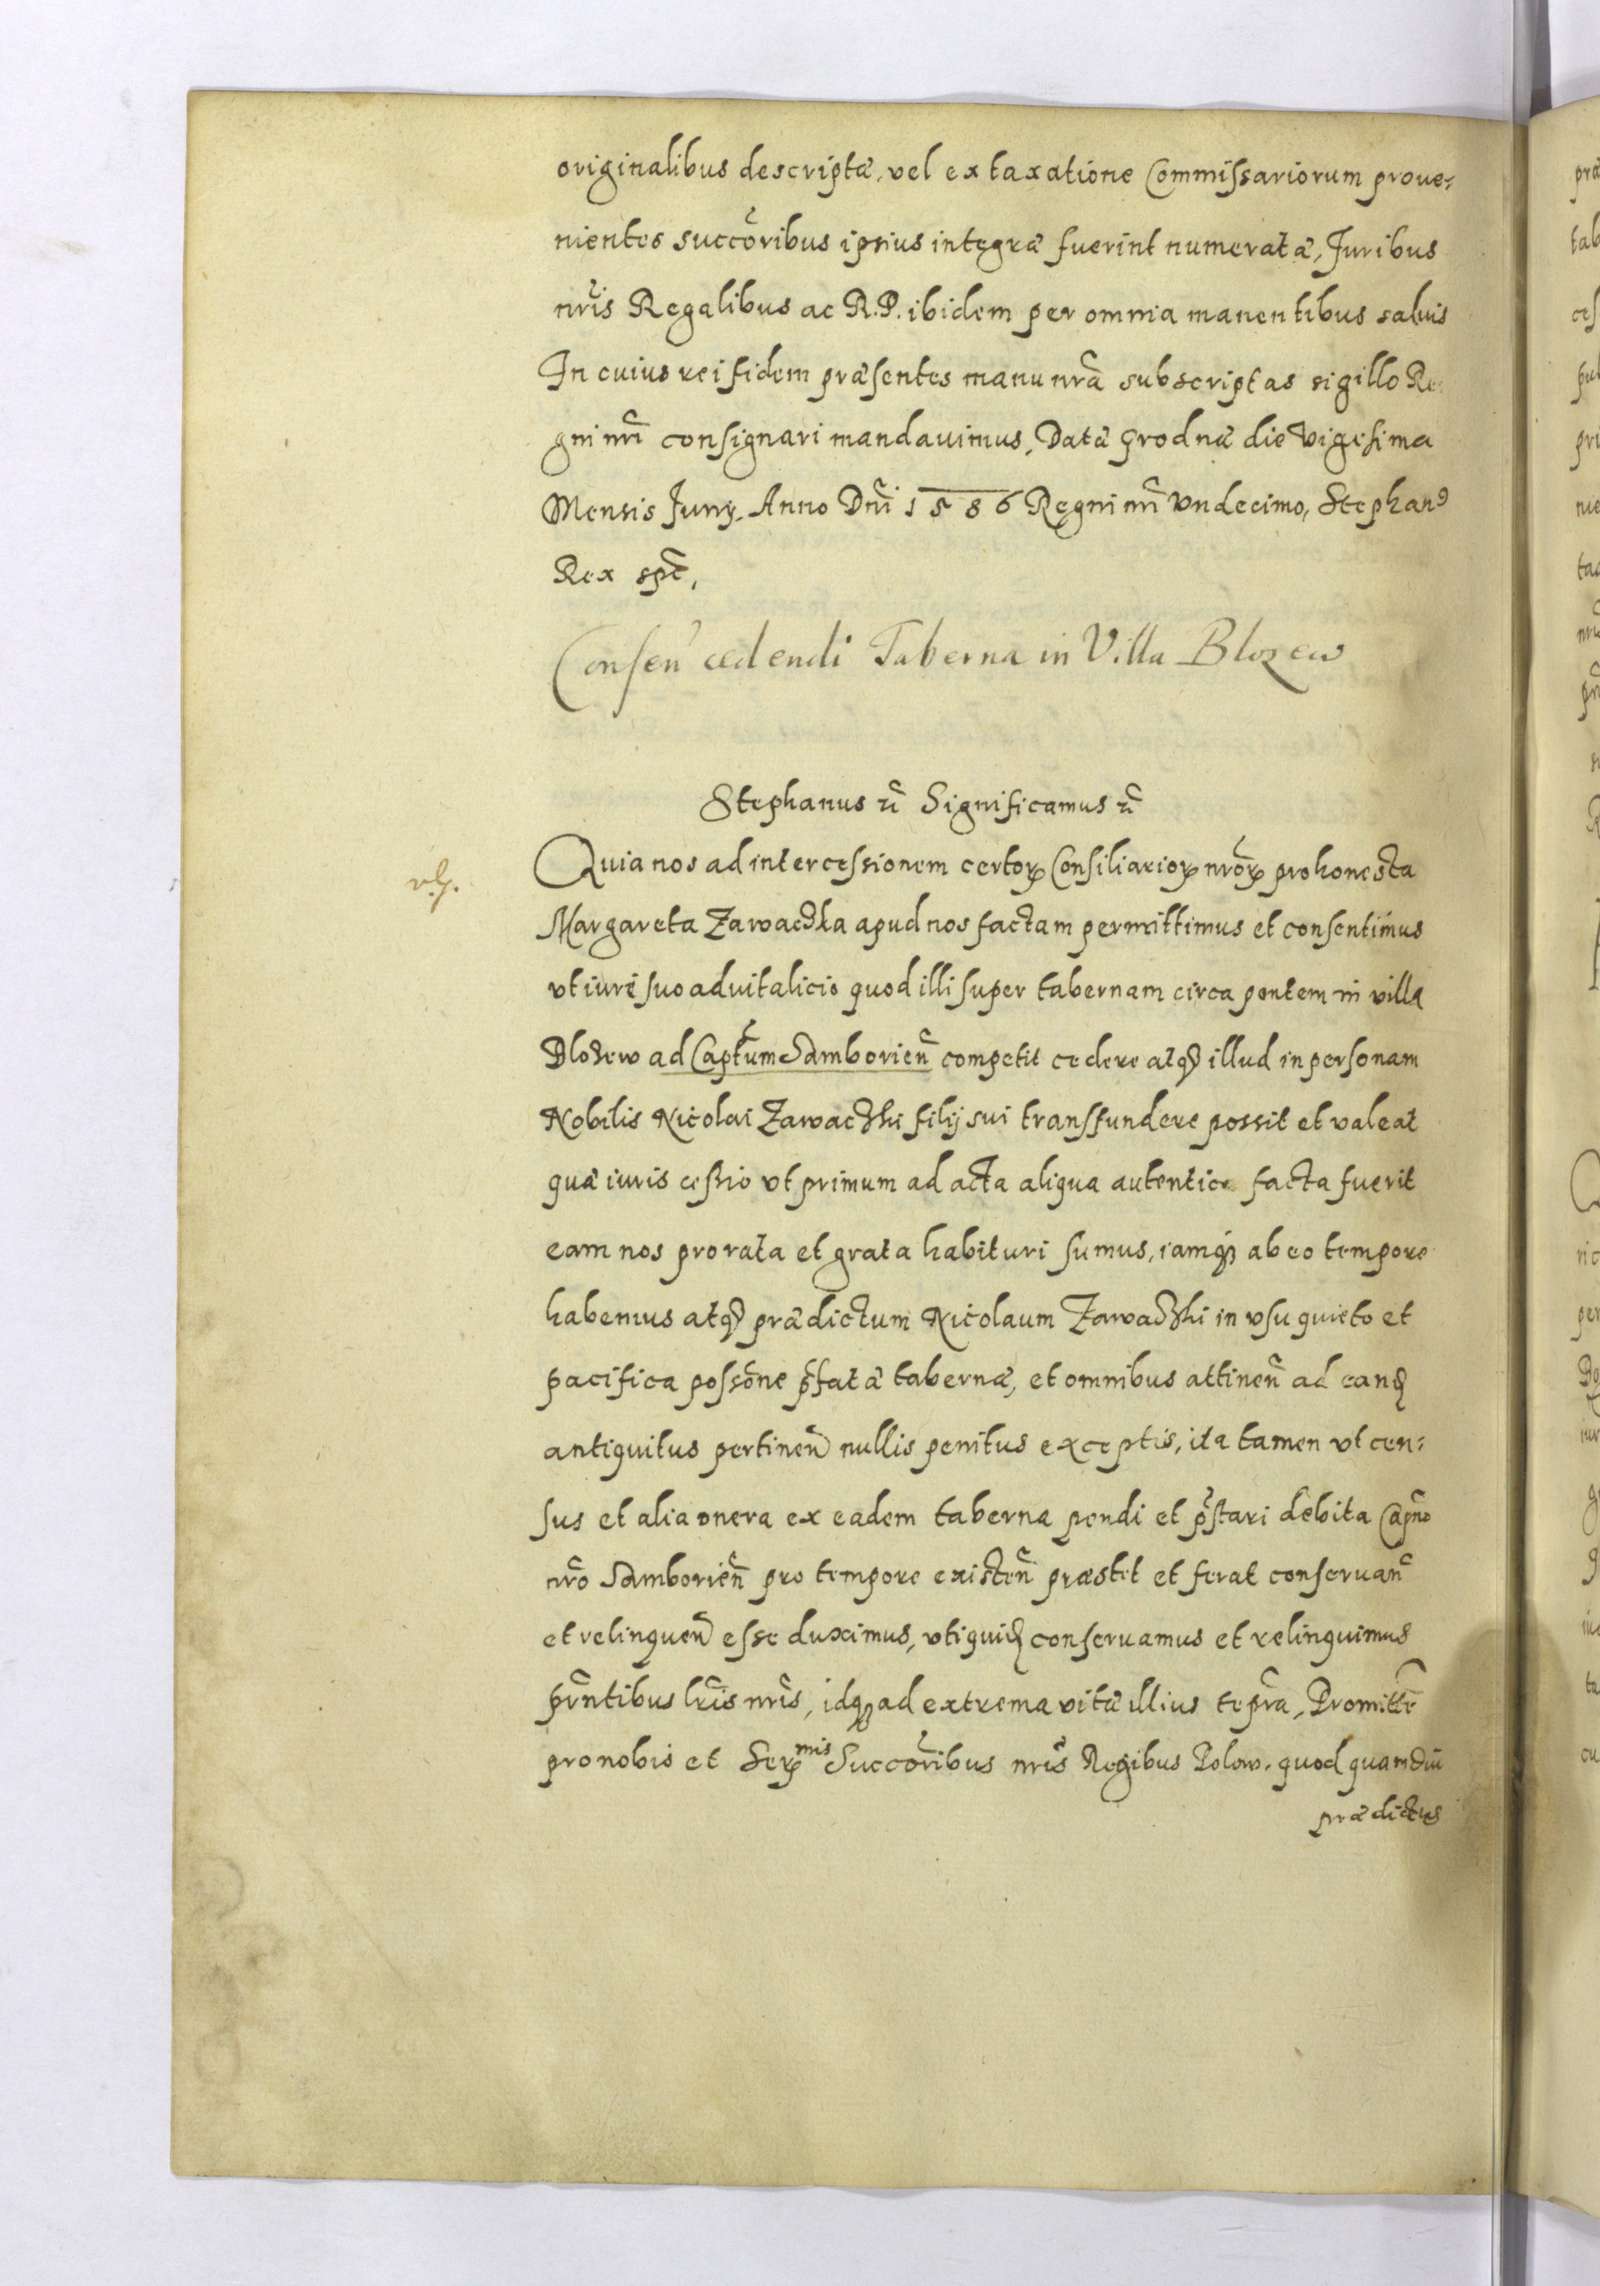 originalibus descriptæ, vel ex taxatione Commissariorum proue=
nientes succoribus ipsius integræ fuerint numeratæ, Juribus
nris Regalibus ac R.P. ibidem per omnia manentibus saluis
In cuius rei fidem præsentes manu nra subscriptas sigillo Re
gni nri consignari mandauimus, Datæ Grodnæ die Vigesima
Mensis Juny. Anno Dni 1586 Regni nri Vndecimo, Stephanꝰ
Rex spt,
Consen cedendi Taberna in Villa Blozew
Stephanus ꝛc Significamus ꝛc
Quia nos ad intercessionem certoꝝ Consiliarioꝝ nroꝝ pro honesta
Margareta Zawaczka apud nos factam permittimus et consentimus
vt iuri suo aduitalicio quod illi super tabernam circa pontem in villa
Blozew ad Captum Samborien competit cedere atqꝫ illud in personam
Nobilis Nicolai Zawaczki filij sui transfundere possit et valeat
quæ iuris cessio vt primum ad acta aliqua autentica facta fuerit
eam nos pro rata et grata habituri sumus, iamqꝫ ab eo tempore
habemus atqꝫ prædictum Nicolaum Zawaczki in vsu quieto et
pacifica possone pfatæ tabernæ, et omnibus attinen ad eandꝫ
antiquitus pertinen nullis penitus exceptis, ita tamen vt cen=
sus et alia onera ex eadem taberna pendi et pstari debita Capno
nro Samborien pro tempore existen præstet et ferat conseruan
et relinquen esse duximus, vti quidꝫ conseruamus et relinquimus
prntibus lris nris, idqꝫ ad extrema vitæ illius tepra, Promitte
pro nobis et Serꝫmis Succoribus nris Regibus Polon. quod quamdiu
prædictus